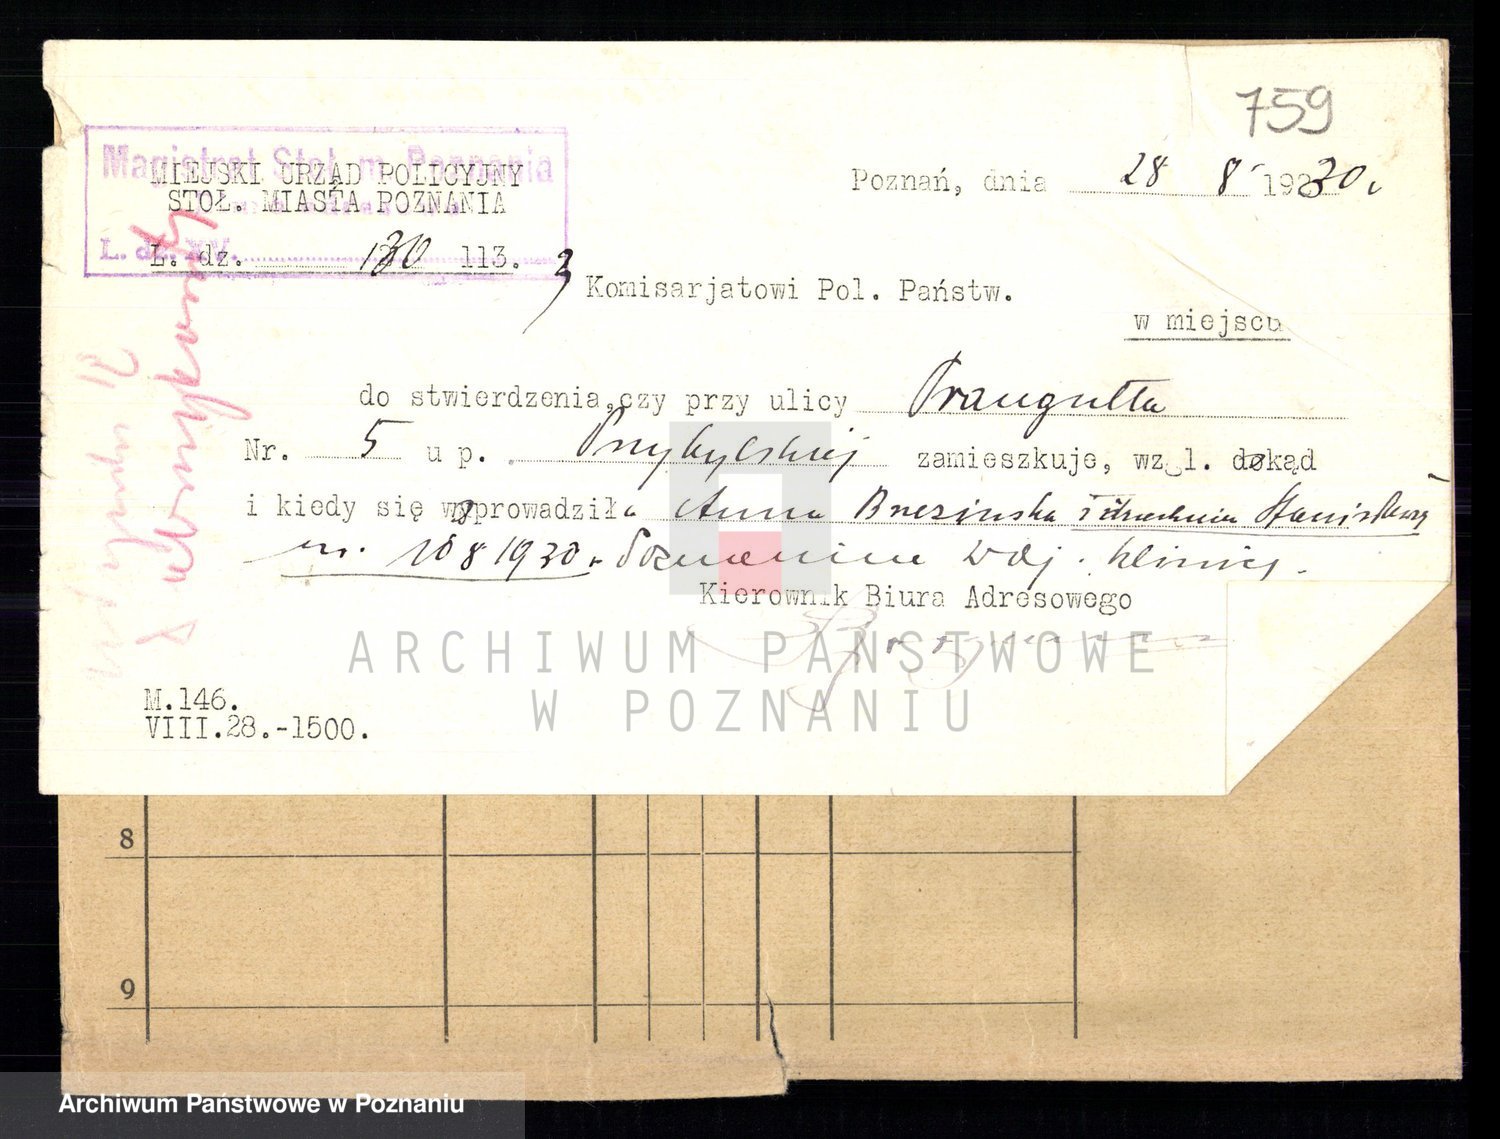 759
Magistrat Stoł. m. Poznania
MIEJSKI URZĄD POLICYJNY
STOŁ. MIASTA POZNANIA
L. dz. 130 113.
Poznań, dnia 28 8 1930 r
3 Komisarjatowi Pol. Państw.
w miejscu
do stwierdzenia, czy przy ulicy Traugutta
Nr. 5 u p. Przybylskiej zamieszkuje, wzgl. dokąd
i kiedy się wyprowadziła Anna Brzezinska i Stanisław
ur. 10 8 1930 r Poznaniu Woj. Klinicy.
Kierownik Biura Adresowego
M.146.
VIII.28.-1500.
ARCHIWUM PAŃSTWOWE
W POZNANIU
8
9
Archiwum Państwowe w Poznaniu